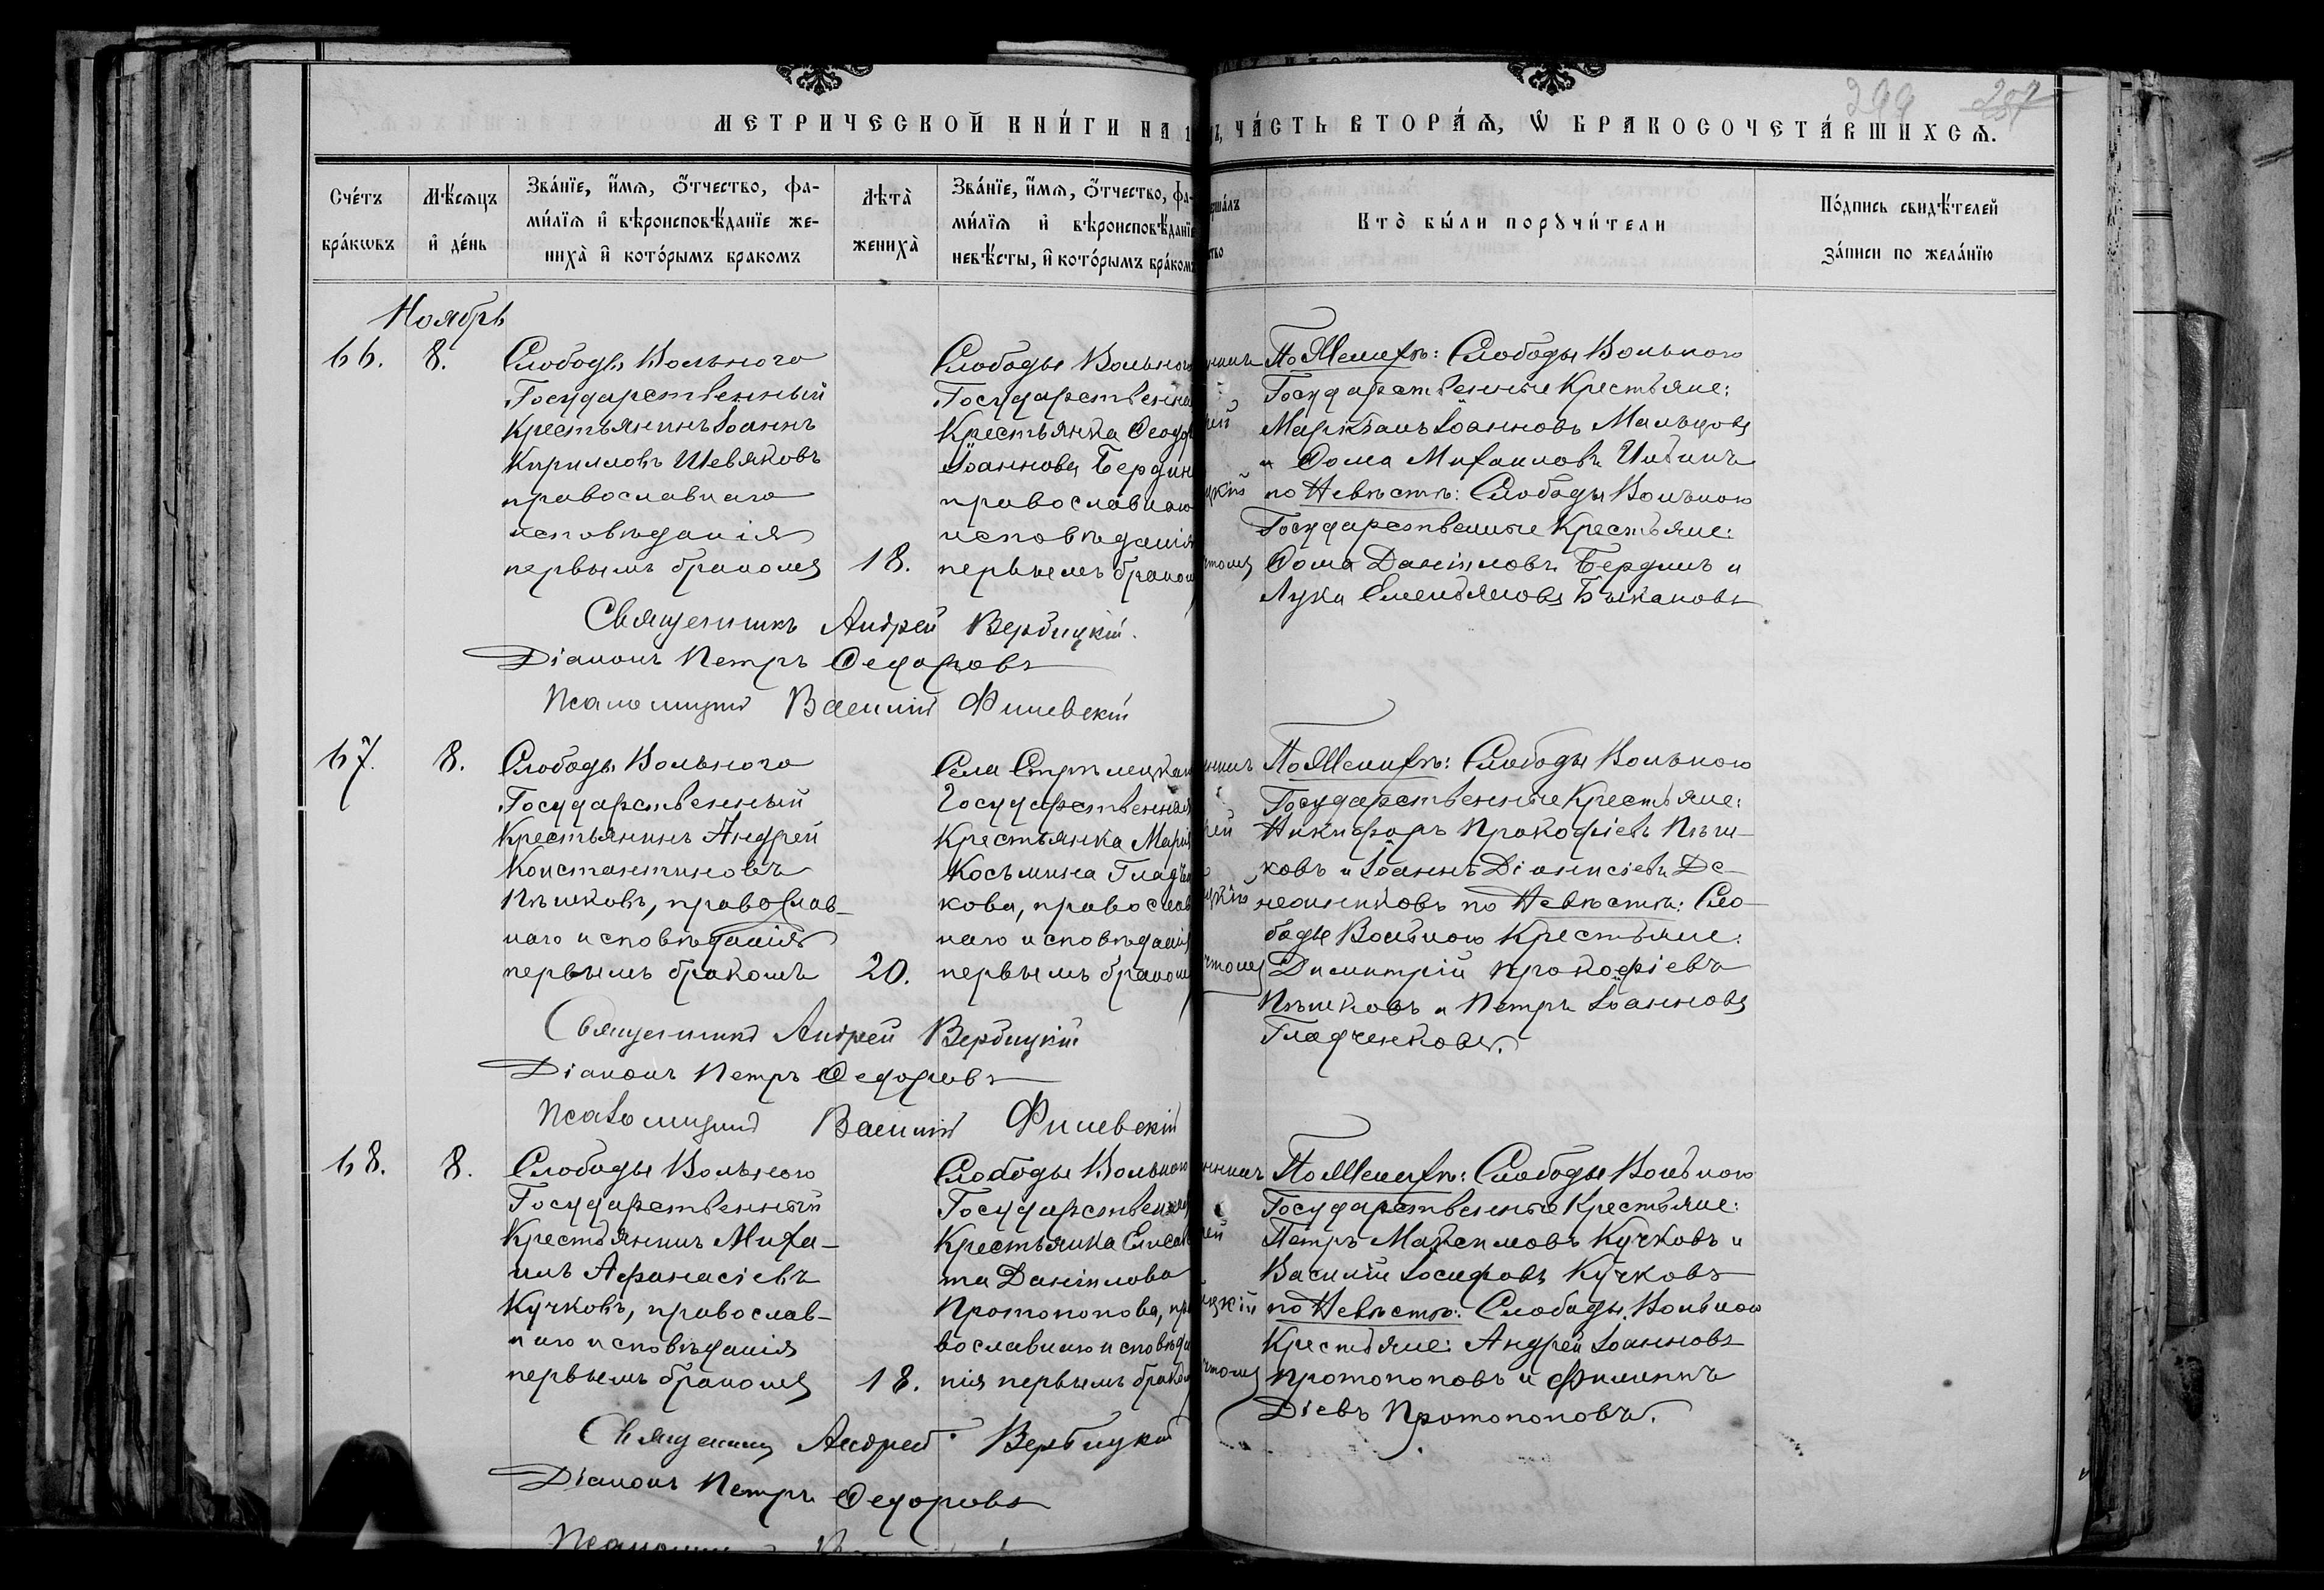 299 257
МЕТРИЧЕСКОЙ КНИ́ГИ НА 1
, ЧА́СТЬ ВТОРА́Ѧ, Ѡ БРАКОСОЧЕТА́ВШИХСѦ.
Сче́тъ бра́кѡвъ
Мѣ́сѧцъ и҆ де́нь
Зва́нїе, и҆́мѧ, ѻ҆́тчество, фа-
ми́лїѧ и҆ вѣроисповѣ́данїе же-
ниха̀ и҆ кото́рымъ бракомъ
Лѣта̀ жениха̀
Зва́нїе, и҆́мѧ, ѻ҆́тчество, фа-
ми́лїѧ и҆ вѣроисповѣ́данїе
невѣ́сты, и҆ кото́рымъ бра́комъ
Кто̀ бы́ли порꙋчи́тели
По́дпись свидѣ́телей
за́писи по жела́нїю
Ноябрь
66. 8.
Слободы Вольного
Государственный
Крестьянинъ Іоаннъ
Кирилловъ Шевяковъ
православнаго
исповѣданія
первымъ бракомъ
18.
Слободы Вольного
Государственна
Крестьянка Ѳеодо
Іоаннова Бердин
православнаго
исповѣданія
первымъ браком
По Женихѣ: Слободы Вольного
Государственные Крестьяне:
Іоанновъ Мальцовъ
и Ѳома Михаиловъ
по Невѣстѣ: Слободы Вольного
Государственные Крестьяне:
Ѳома Даніиловъ Бердинъ и
Лука Емельяновъ Быкановъ
Священникъ Андрей Вербицкій.
Діаконъ Петръ Ѳедоровъ
Псаломщикъ Василій Филевскій
67. 8.
Слободы Вольного
Государственный
Крестьянинъ Андрей
Константиновъ
Пѣшковъ, православ-
наго исповѣданія
первымъ бракомъ
20.
Села Стрѣлецкаго
Государственная
Крестьянка Марія
Косьмина Гладч
кова, православ
наго исповѣданія
первымъ браком
По Женихѣ: Слободы Вольного
Государственные Крестьяне:
Никифоръ Прокофіевъ Пѣш-
ковъ и Іоаннъ Діонисіевъ
по Невѣстѣ: Сло-
боды Вольного Крестьяне:
Димитрій Прокофіевъ
Пѣшковъ и Петръ Іоанновъ
Гладченковъ.
Священникъ Андрей Вербицкій
Діаконъ Петръ Ѳедоровъ
Псаломщикъ Василій Филевскій
68. 8.
Слободы Вольного
Государственный
Крестьянинъ Миха-
илъ Афанасіевъ
Кучковъ, православ-
наго исповѣданія
первымъ бракомъ
18.
Слободы Вольного
Государственная
Крестьянка Елисаве
та Даніилова
Протопопова, пра
вославнаго исповѣда
нія первымъ браком
По Женихѣ: Слободы Вольного
Государственные Крестьяне:
Петръ Максимовъ Кучковъ и
Василій Іосифовъ Кучковъ
по Невѣстѣ: Слободы Вольного
Крестьяне: Андрей Іоанновъ
Протопоповъ и Филиппъ
Діевъ Протопоповъ.
Священникъ Андрей Вербицкій
Діаконъ Петръ Ѳедоровъ